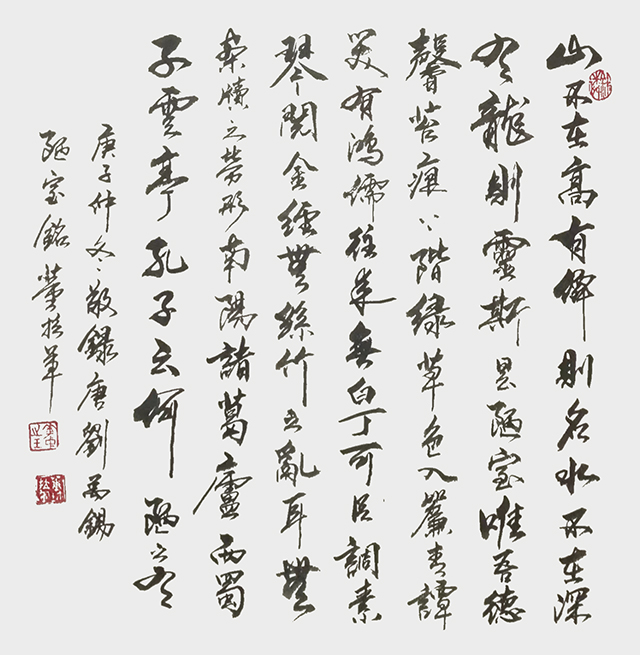 山不在高有僊則名水不在深
有龍則靈斯是陋室唯吾德
馨苔痕上階緑草色入簾青譚
笑有鴻儒往来無白丁可以調素
琴閲金經無絲竹之亂耳無
案牘之勞形南陽諸葛廬西蜀
子雲亭孔子云何陋之有
庚子仲冬敬録唐劉禹錫
陋室銘